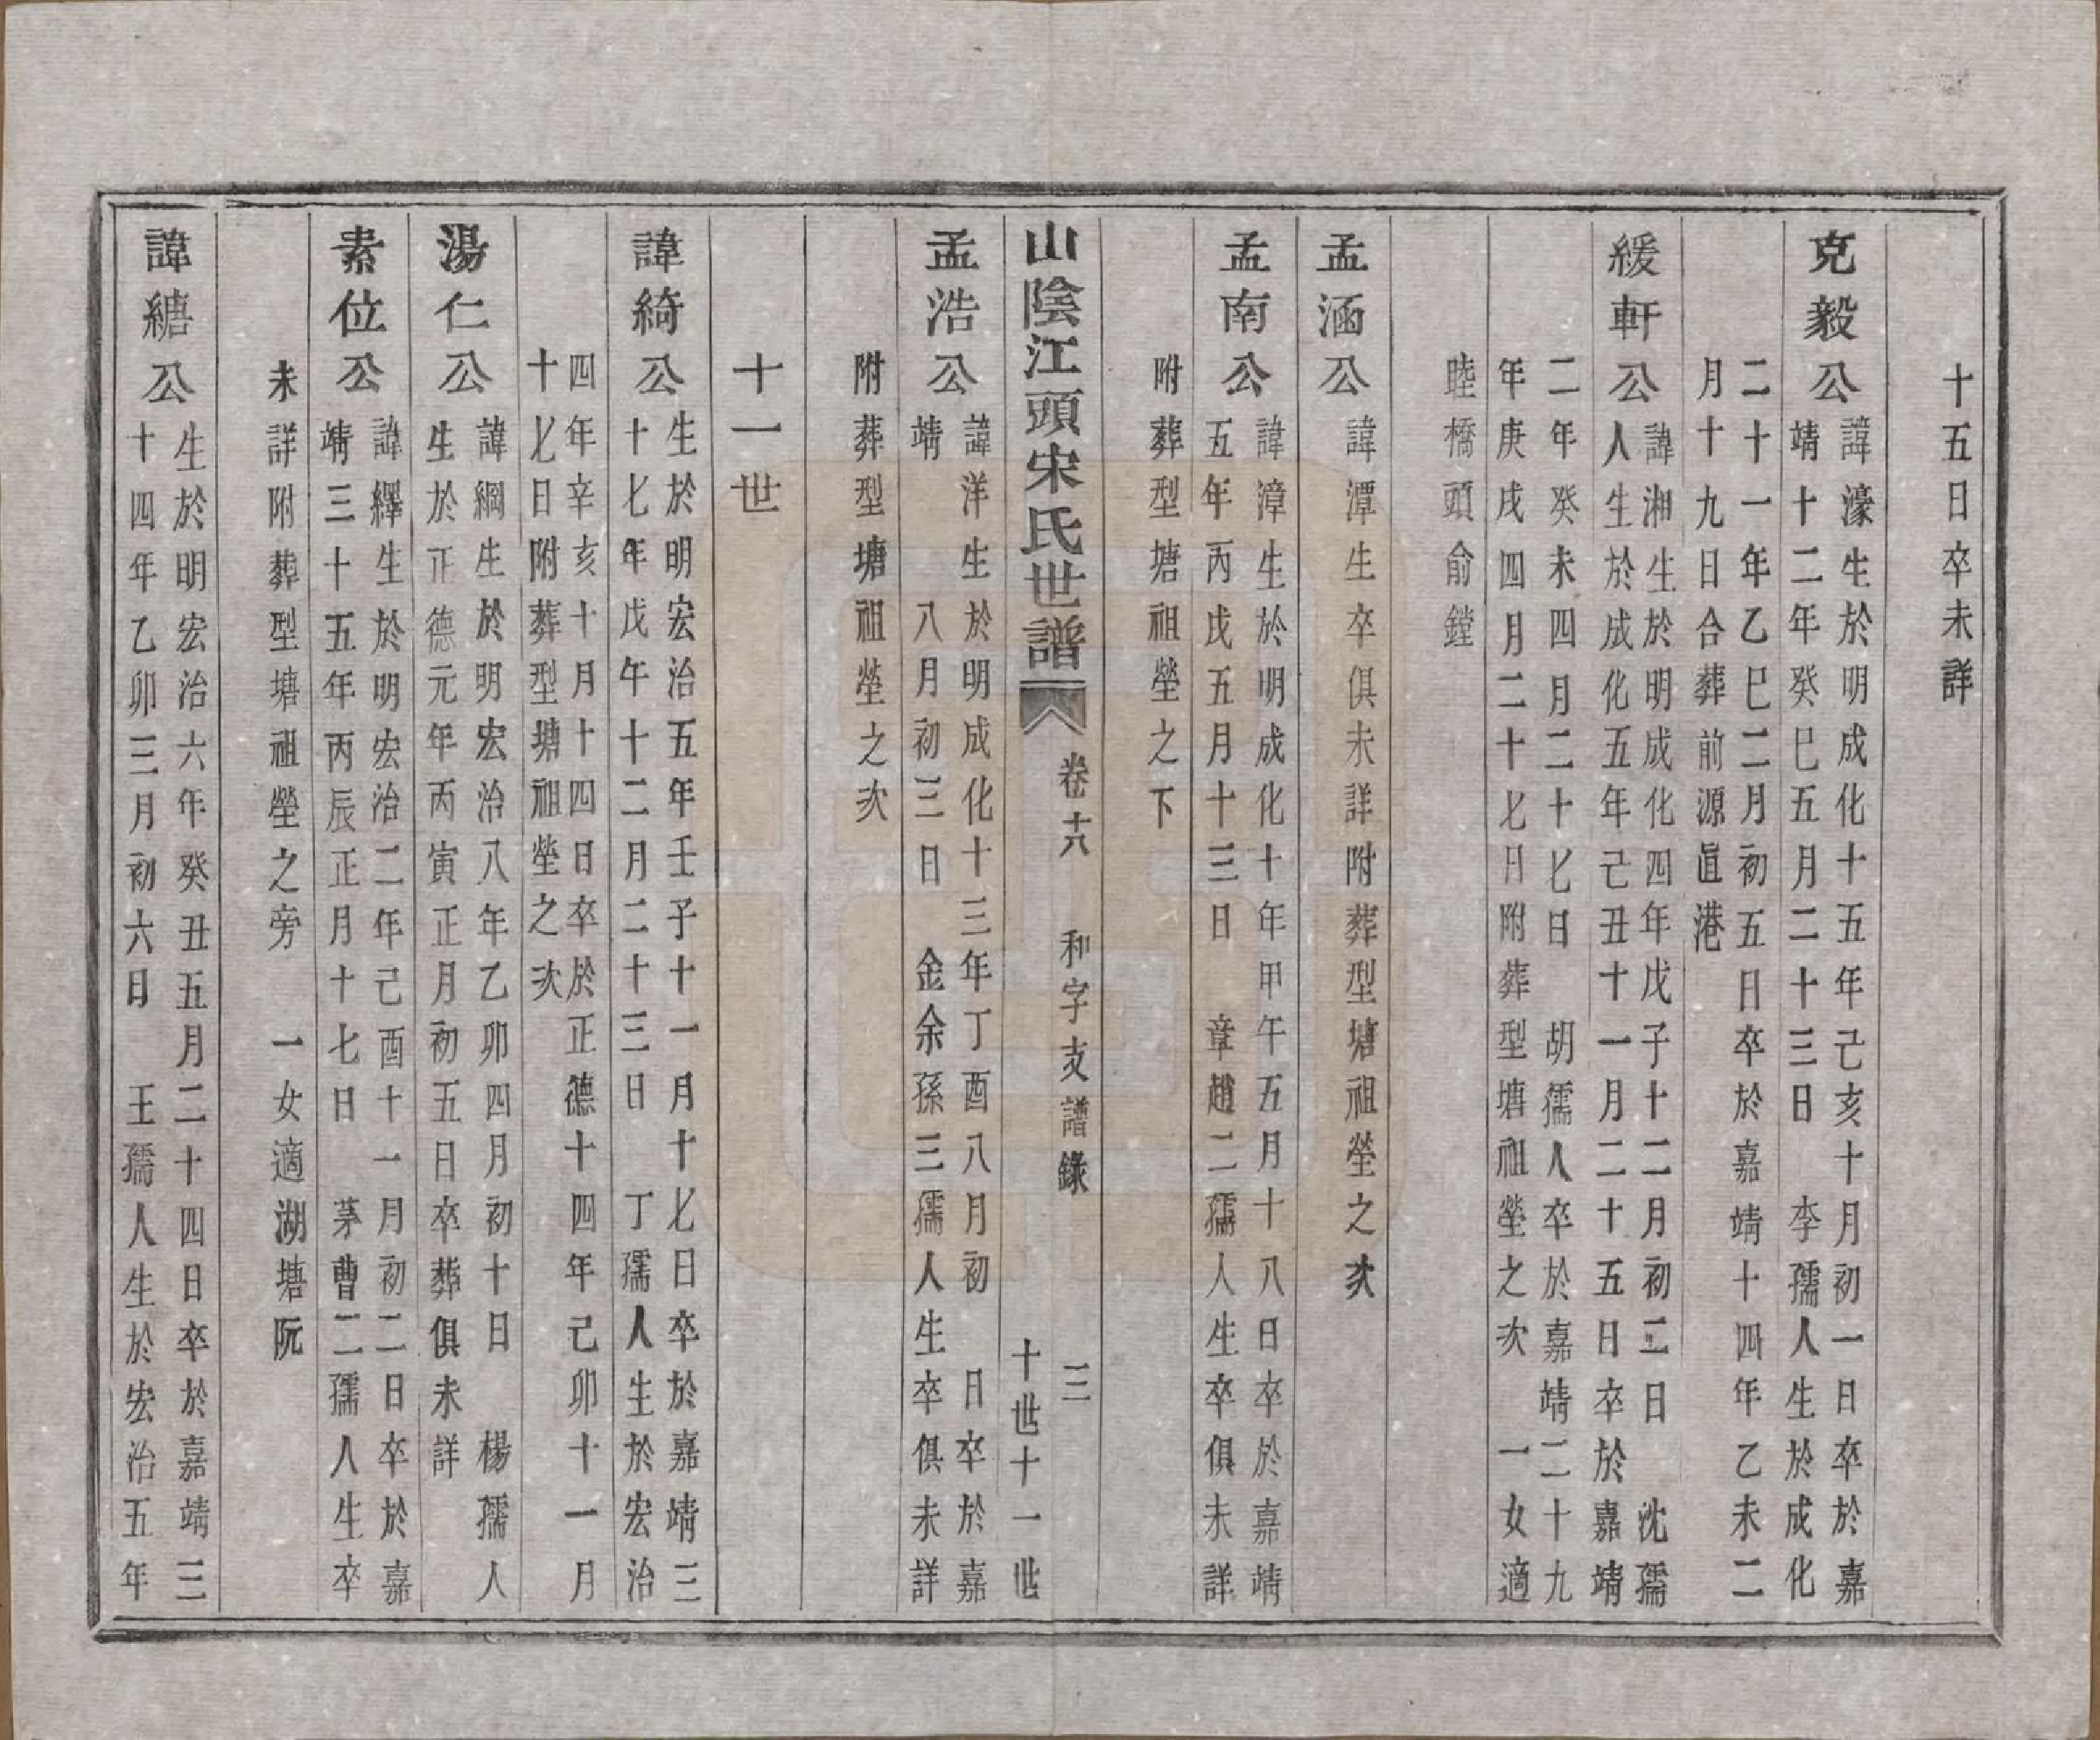 十五日卒未詳
克毅公
諱濠生於明成化十五年己亥十月初一日卒於嘉
靖十二年癸巳五月二十三日 李孺人生於成化
二十一年乙巳二月初五日卒於嘉靖十四年乙未二
月十九日合葬前源眞港
緩軒公
諱湘生於明成化四年戊子十二月初二日 沈孺
人生於成化五年己丑十一月二十五日卒於嘉靖
二年癸未四月二十七日 胡孺人卒於嘉靖二十九
年庚戌四月二十七日附葬型塘祖塋之次 一女適
睦橋頭俞鏜
孟涵公
諱潭生卒俱未詳附葬型塘祖塋之次
孟南公
諱漳生於明成化十年甲午五月十八日卒於嘉靖
五年丙戌五月十三日 章趙二孺人生卒俱未詳
附葬型塘祖塋之下
山陰江頭宋氏世譜 卷十六 和字支譜錄 三
十世十一世
孟浩公
諱洋生於明成化十三年丁酉八月初 日卒於嘉
靖 八月初三日 金余孫三孺人生卒俱未詳
附葬型塘祖塋之次
十一世
諱綺公
生於明宏治五年壬子十一月十七日卒於嘉靖三
十七年戊午十二月二十三日 丁孺人生於宏治
四年辛亥十月十四日卒於正德十四年己卯十一月
十七日附葬型塘祖塋之次
湯仁公
諱綱生於明宏治八年乙卯四月初十日 楊孺人
生於正德元年丙寅正月初五日卒葬俱未詳
素位公
諱繹生於明宏治二年己酉十一月初二日卒於嘉
靖三十五年丙辰正月十七日 茅曹二孺人生卒
未詳附葬型塘祖塋之旁 一女適湖塘阮
諱繥公
生於明宏治六年癸丑五月二十四日卒於嘉靖三
十四年乙卯三月初六日 王孺人生於宏治五年